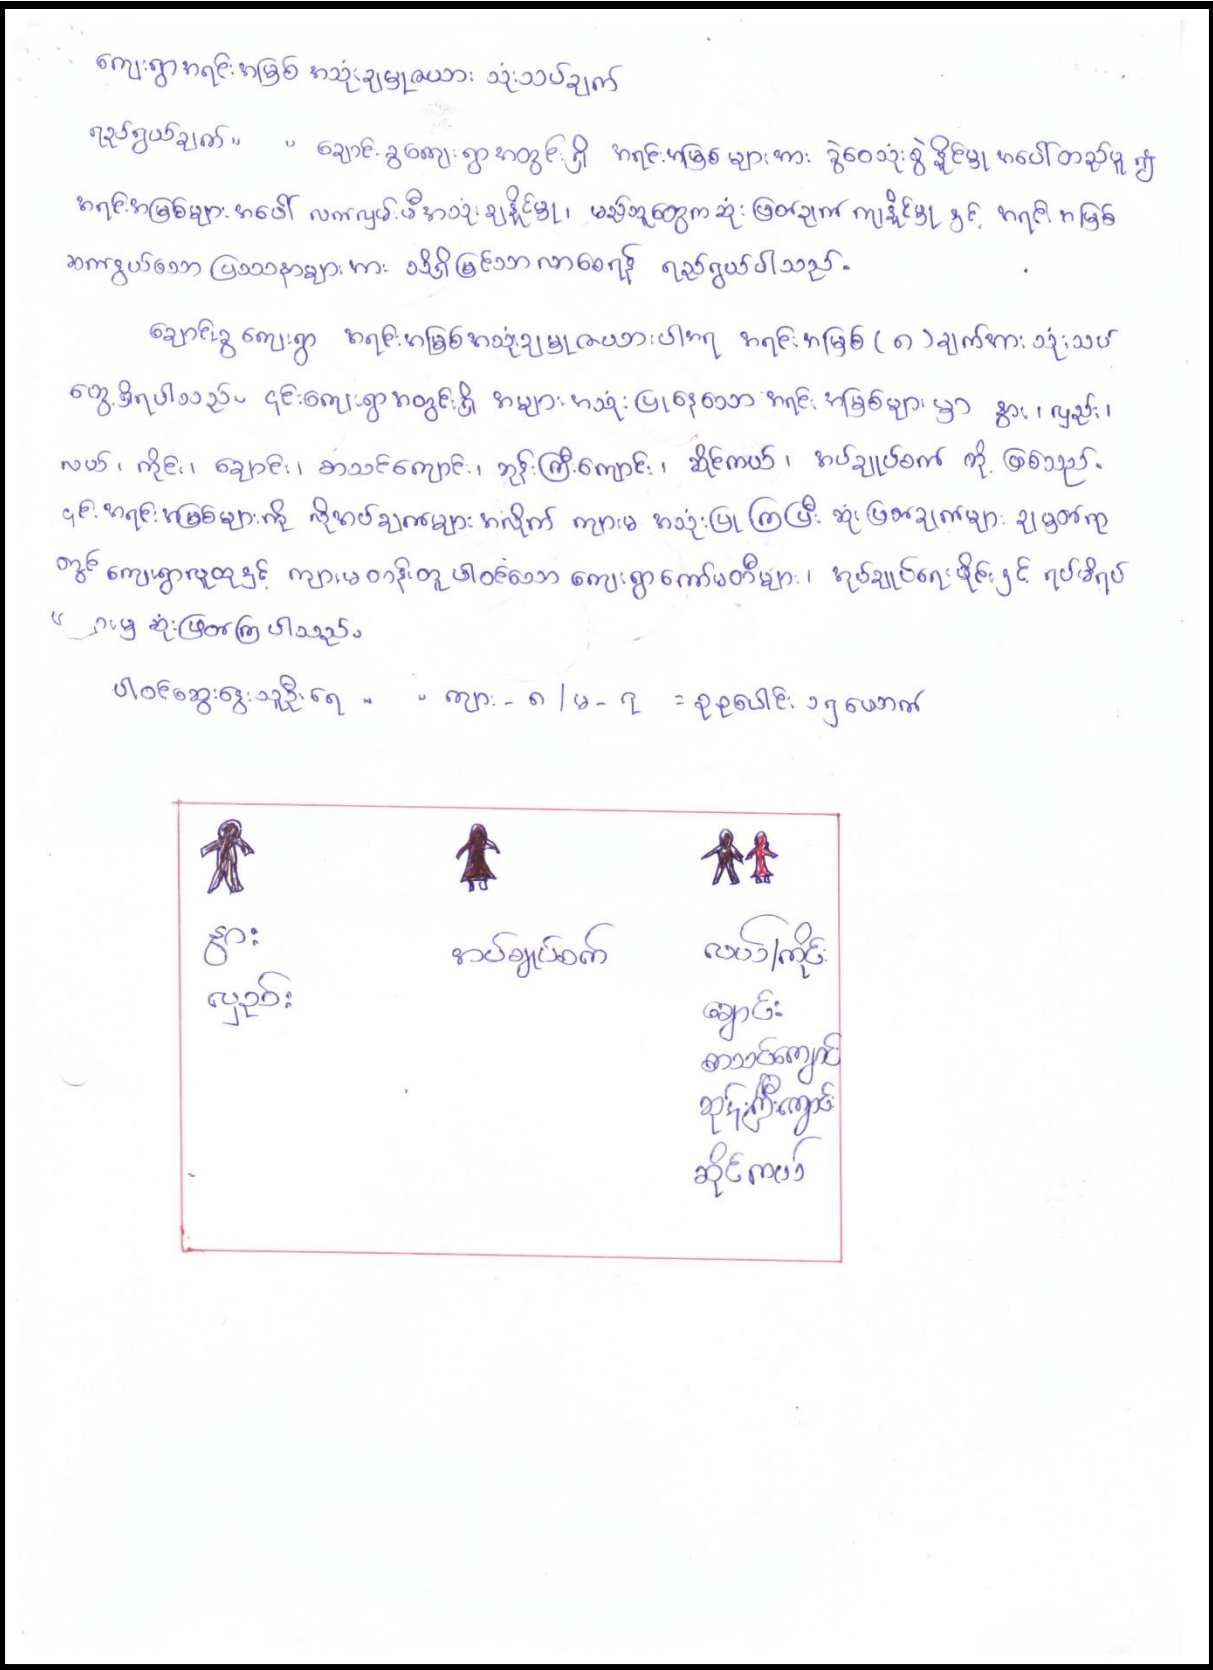 ကျေးရွာအရင်းအမြစ် အသုံးချမှုဇယား သုံးသပ်ချက်
ရည်ရွယ်ချက်။ ။ ချောင်းခွကျေးရွာအတွင်းရှိ အရင်းအမြစ်များအား ခွဲဝေသုံးစွဲနိုင်မှု အပေါ်တည်မူ၍
အရင်းအမြစ်များအပေါ် လက်လှမ်းမီအသုံးချနိုင်မှု၊ မည်သူတွေက ဆုံးဖြတ်ချက်ကျနိုင်မှု နှင့် အရင်းအမြစ်
ဆက်နွယ်သော ပြဿနာများအား သိရှိမြင်သာလာစေရန် ရည်ရွယ်ပါသည်။
ချောင်းခွကျေးရွာ အရင်းအမြစ်အသုံးချမှုဇယားပါအရ အရင်းအမြစ် (၈) ချက်အား သုံးသပ်
တွေ့ရှိရပါသည်။ ၎င်းကျေးရွာအတွင်းရှိ အများအသုံးပြုနေသော အရင်းအမြစ်များမှာ နွား၊ လှည်း၊
လယ်၊ ကိုင်း၊ ချောင်း၊ စာသင်ကျောင်း၊ ဘုန်းကြီးကျောင်း၊ ဆိုင်ကယ်၊ အပ်ချုပ်စက် တို့ ဖြစ်သည်။
၎င်းအရင်းအမြစ်များကို လိုအပ်ချက်များအလိုက် ကျား၊မ အသုံးပြုကြပြီး ဆုံးဖြတ်ချက်များ ချမှတ်ရာ
တွင် ကျေးရွာလူထုနှင့် ကျား၊မ တန်းတူ ပါဝင်သော ကျေးရွာကော်မတီများ၊ အုပ်ချုပ်ရေးပိုင်းနှင့် ရပ်မိရပ်
ဖများမှ ဆုံးဖြတ်ကြပါသည်။
ပါဝင်ဆွေးနွေးသူဦးရေ ။ ။ ကျား - ၈ / မ - ၇ = စုစုပေါင်း ၁၅ ယောက်
နွား
လှည်း
အပ်ချုပ်စက်
လယ်/ကိုင်း
ချောင်း
စာသင်ကျောင်း
ဘုန်းကြီးကျောင်း
ဆိုင်ကယ်